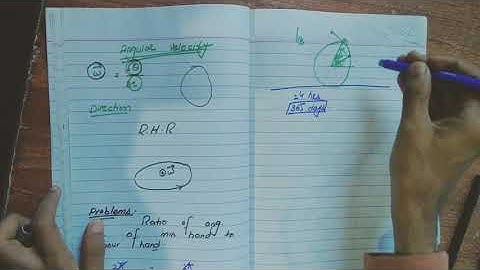 Angular Velocity
ω =
Direction
R.H.R
ω
Problems:
Ratio of ang.
of min hand to
hour hand
24 hrs
365 days